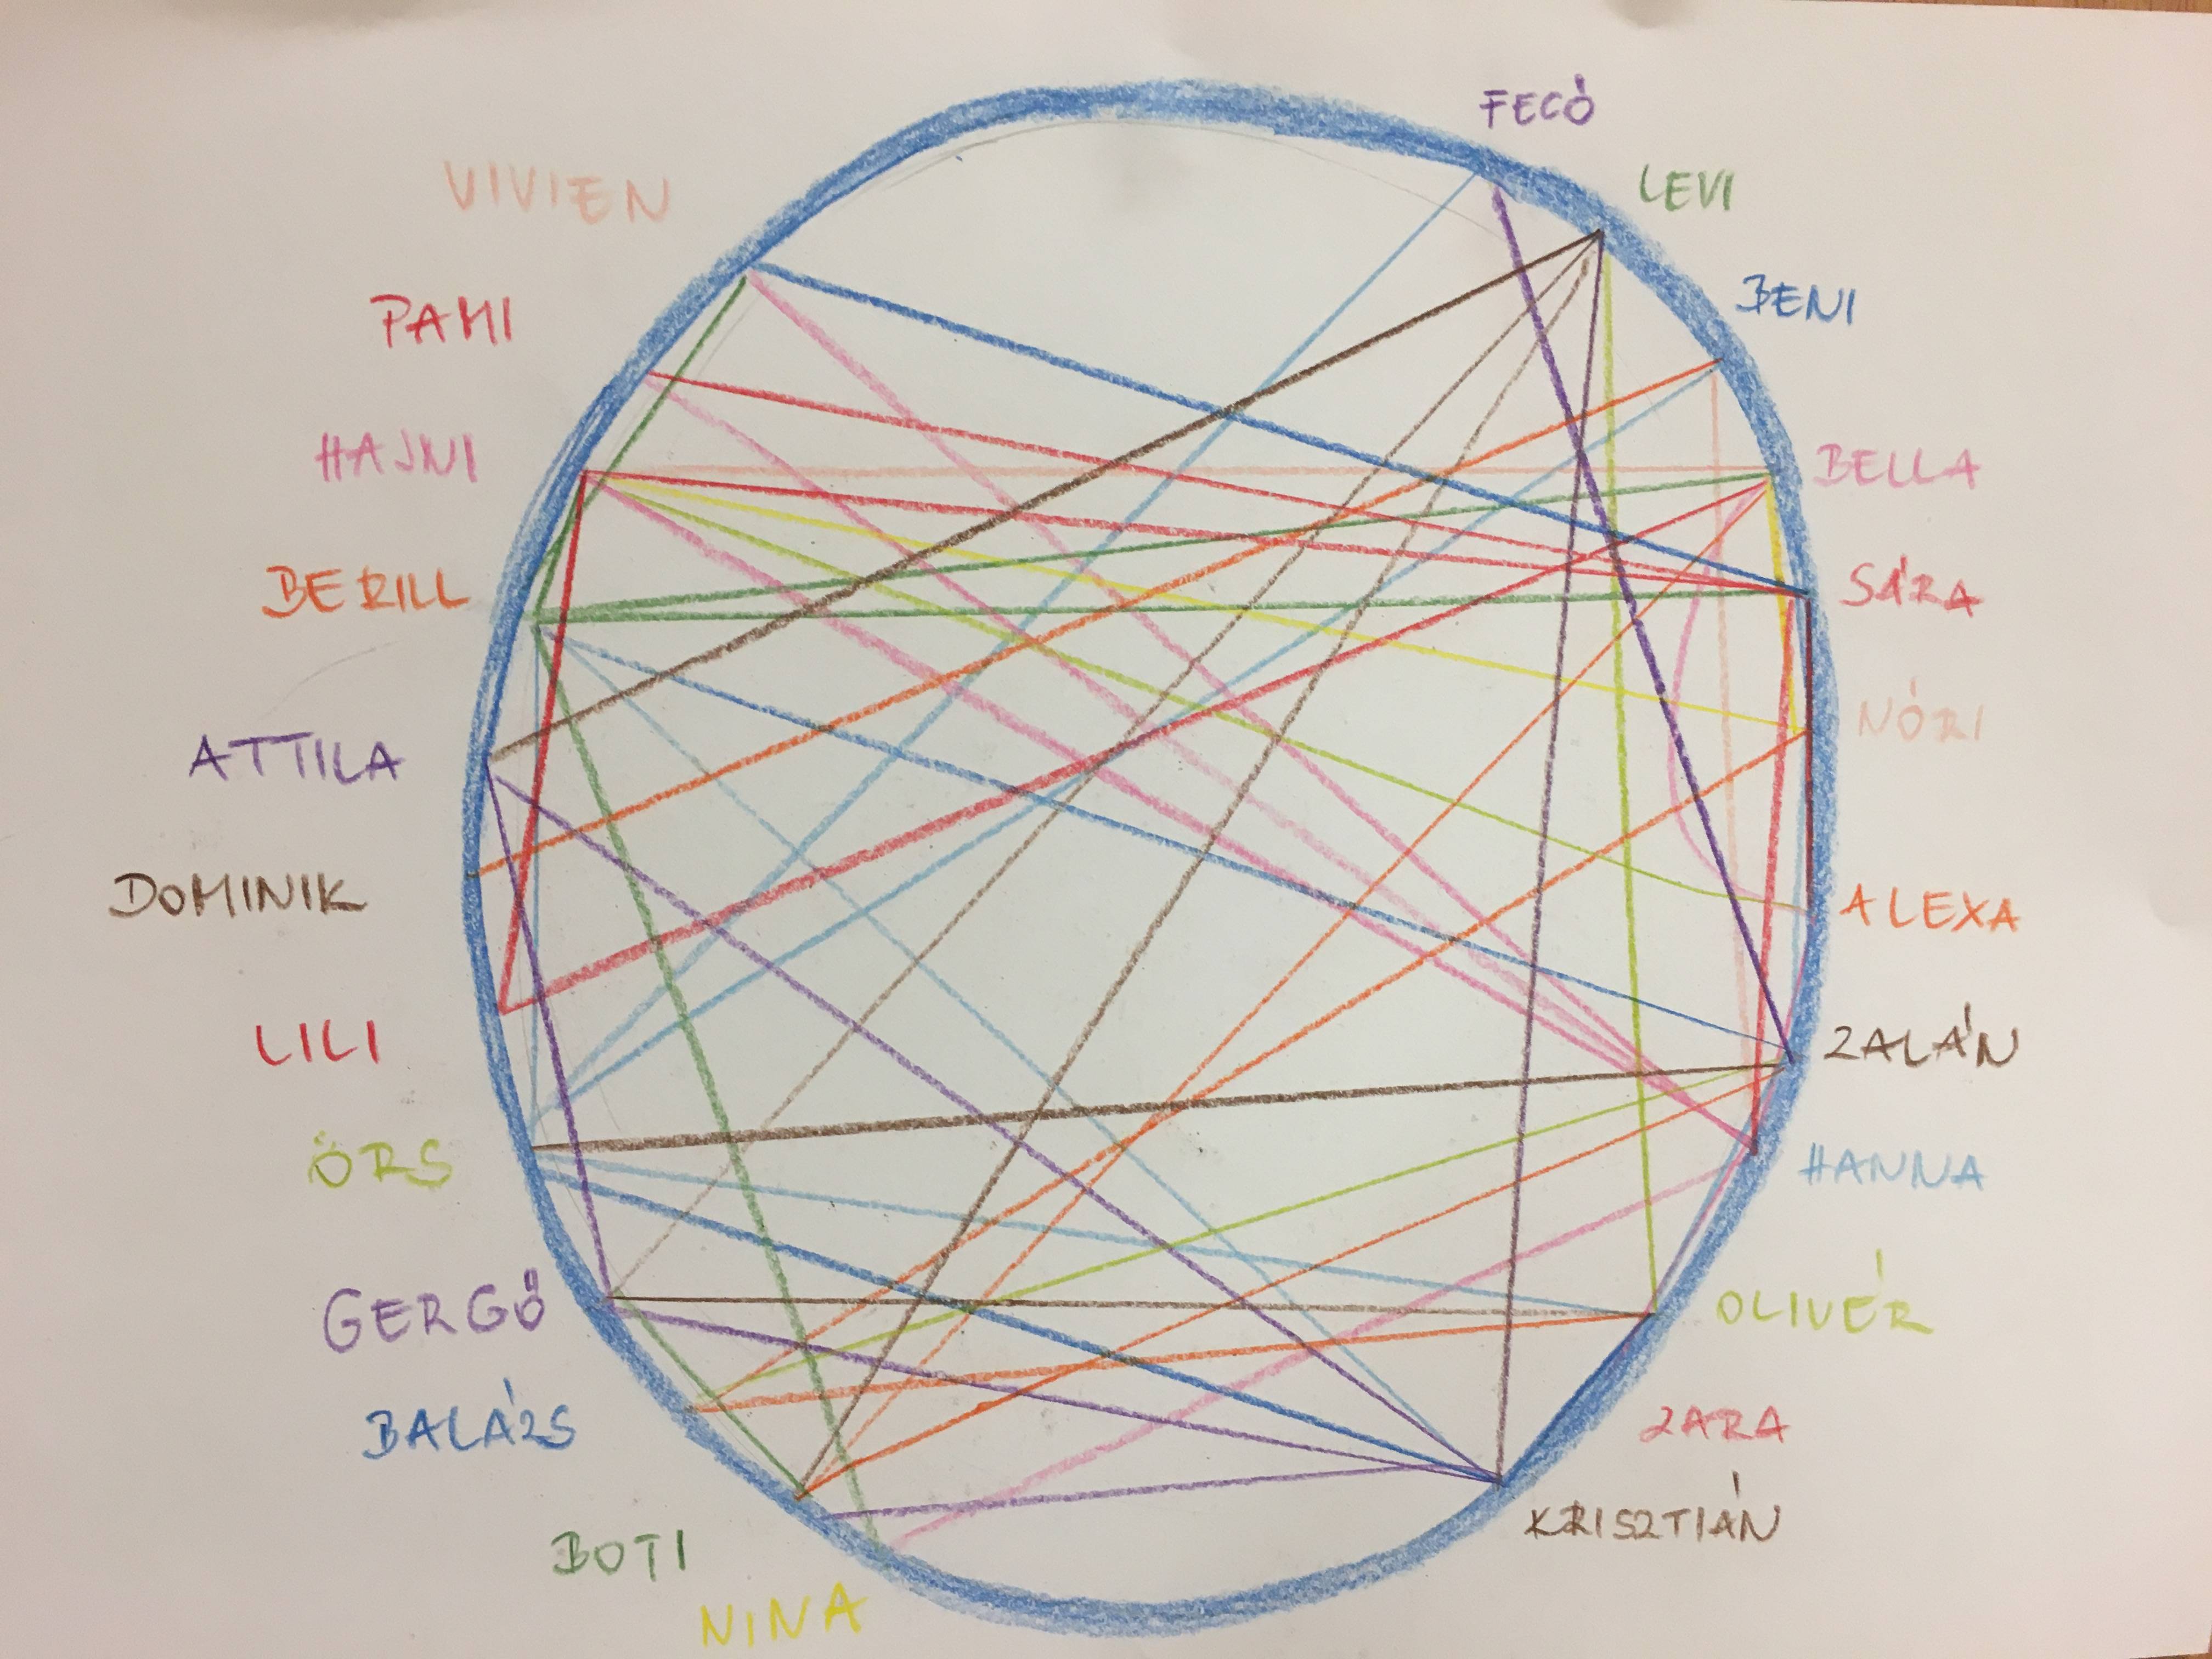 FECÓ
LEVI
VIVIEN
BENI
PAMI
HAJNI
BELLA
BERILL
SÁRA
NÓRI
ATTILA
DOMINIK
ALEXA
LILI
ZALÁN
ÖRS
HANNA
GERGŐ
OLIVÉR
BALÁZS
ZARA
KRISZTIÁN
BOTI
NINA